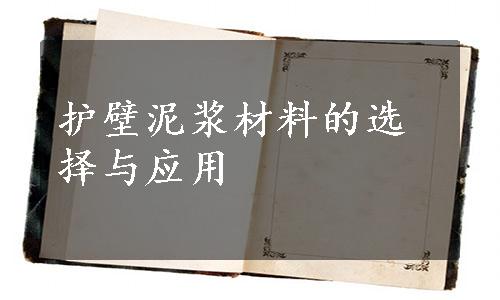 护壁泥浆材料的选
择与应用